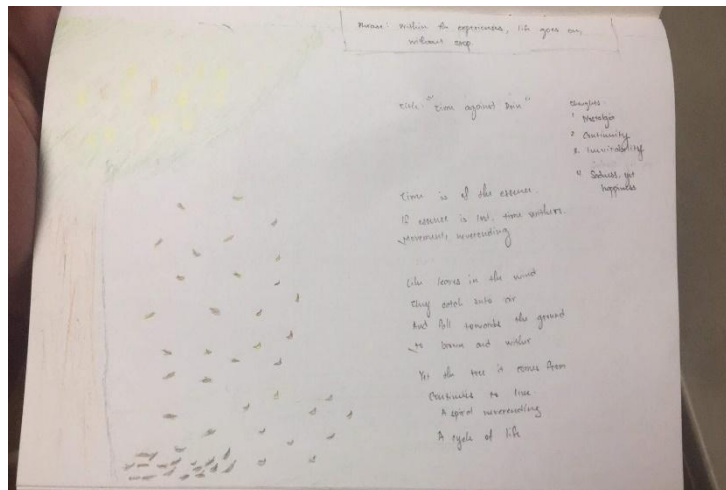 Phrase: Within the experiences, life goes on,
without stop.
Title: "Time against Don"
Thoughts
Nostalgia
Continuity
Inevitability
Sadness, yet
happiness
Time is of the essence.
If essence is lost, time withers.
Movement, neverending
Like leaves in the wind
They catch onto air
And fall towards the ground
To brown and wither
Yet the tree it comes from
Continues to live
A spiral neverending
A cycle of life